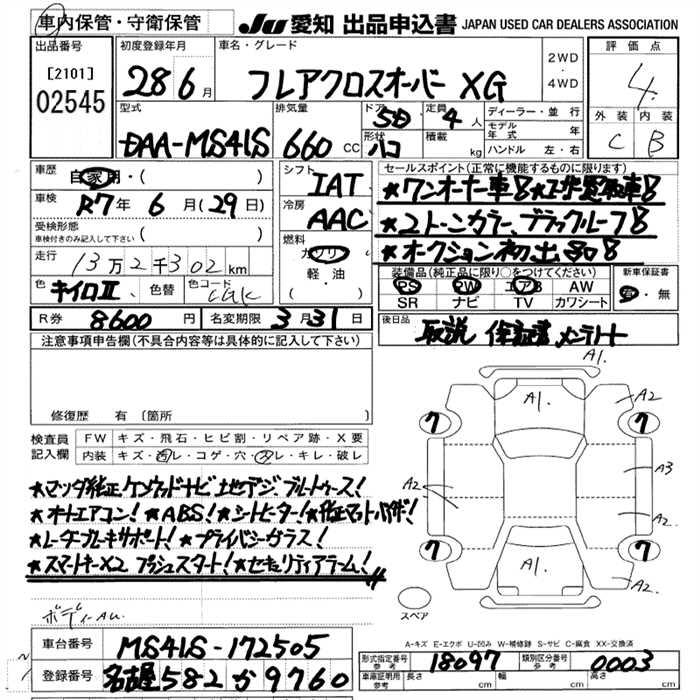 車内保管・守衛保管
JU 愛知 出品申込書 JAPAN USED CAR DEALERS ASSOCIATION
出品番号
[2101]
02545
初度登録年月
28 6月
車名・グレード
フレアクロスオーバー XG
2WD
・
4WD
評価点
4
外装 内装
C B
型式
DAA-MS41S
排気量
660 cc
ドア
5D
形状
ハコ
定員
4人
積載
kg
ディーラー・並行
モデル年式 年
ハンドル 左・右
車歴
自家用・( )
車検
R7年 6月(29日)
受検形態
車検付きのみ記入して下さい ( )
走行
13万2千302km
色 キイロⅡ 色替 色コード CGK
シフト
IAT
冷房
AAC
燃料
ガソリン
軽・油
セールスポイント(正常に機能するものに限ります)
★ワンオーナー車!!★ユーザー買取車!!
★2トーンカラー、ブラックルーフ!!
★オークション初出品!!
装備品(純正品に限り○をつけてください)
PS PW エアB AW
SR ナビ TV カワシート
新車保証書
有・無
R券 8600円 名変期限 3月31日
後日品 取説 保証書 メンテノート
注意事項申告欄(不具合内容等は具体的に記入して下さい)
修復歴 有 〔箇所
検査員記入欄
FW キズ・飛石・ヒビ割・リペア跡・X要
内装 キズ・汚レ・コゲ・穴・スレ・キレ・破レ
★マツダ純正ケンウッドナビ 地デジ、ブルートゥース!
★オートエアコン!★ABS!★シートヒーター!★純正マット・バイザー!
★レーダーブレーキサポート!★プライバシーガラス!
★スマートキーX2 プッシュスタート!★セキュリティアラーム!
ボディーAU.
A1.
A1.
A2
7
7
A2
A3
A2..
7
7
A1.
A2.
スペア
A-キズ E-エクボ U-凹み W-補修跡 S-サビ C-腐食 XX-交換済
車台番号 MS41S-172505
登録番号 名古屋582か9760
形式指定番号 参考 18097
類別区分番号 参考 0003
車庫証明用 参考 長さ cm 幅 cm 高さ cm